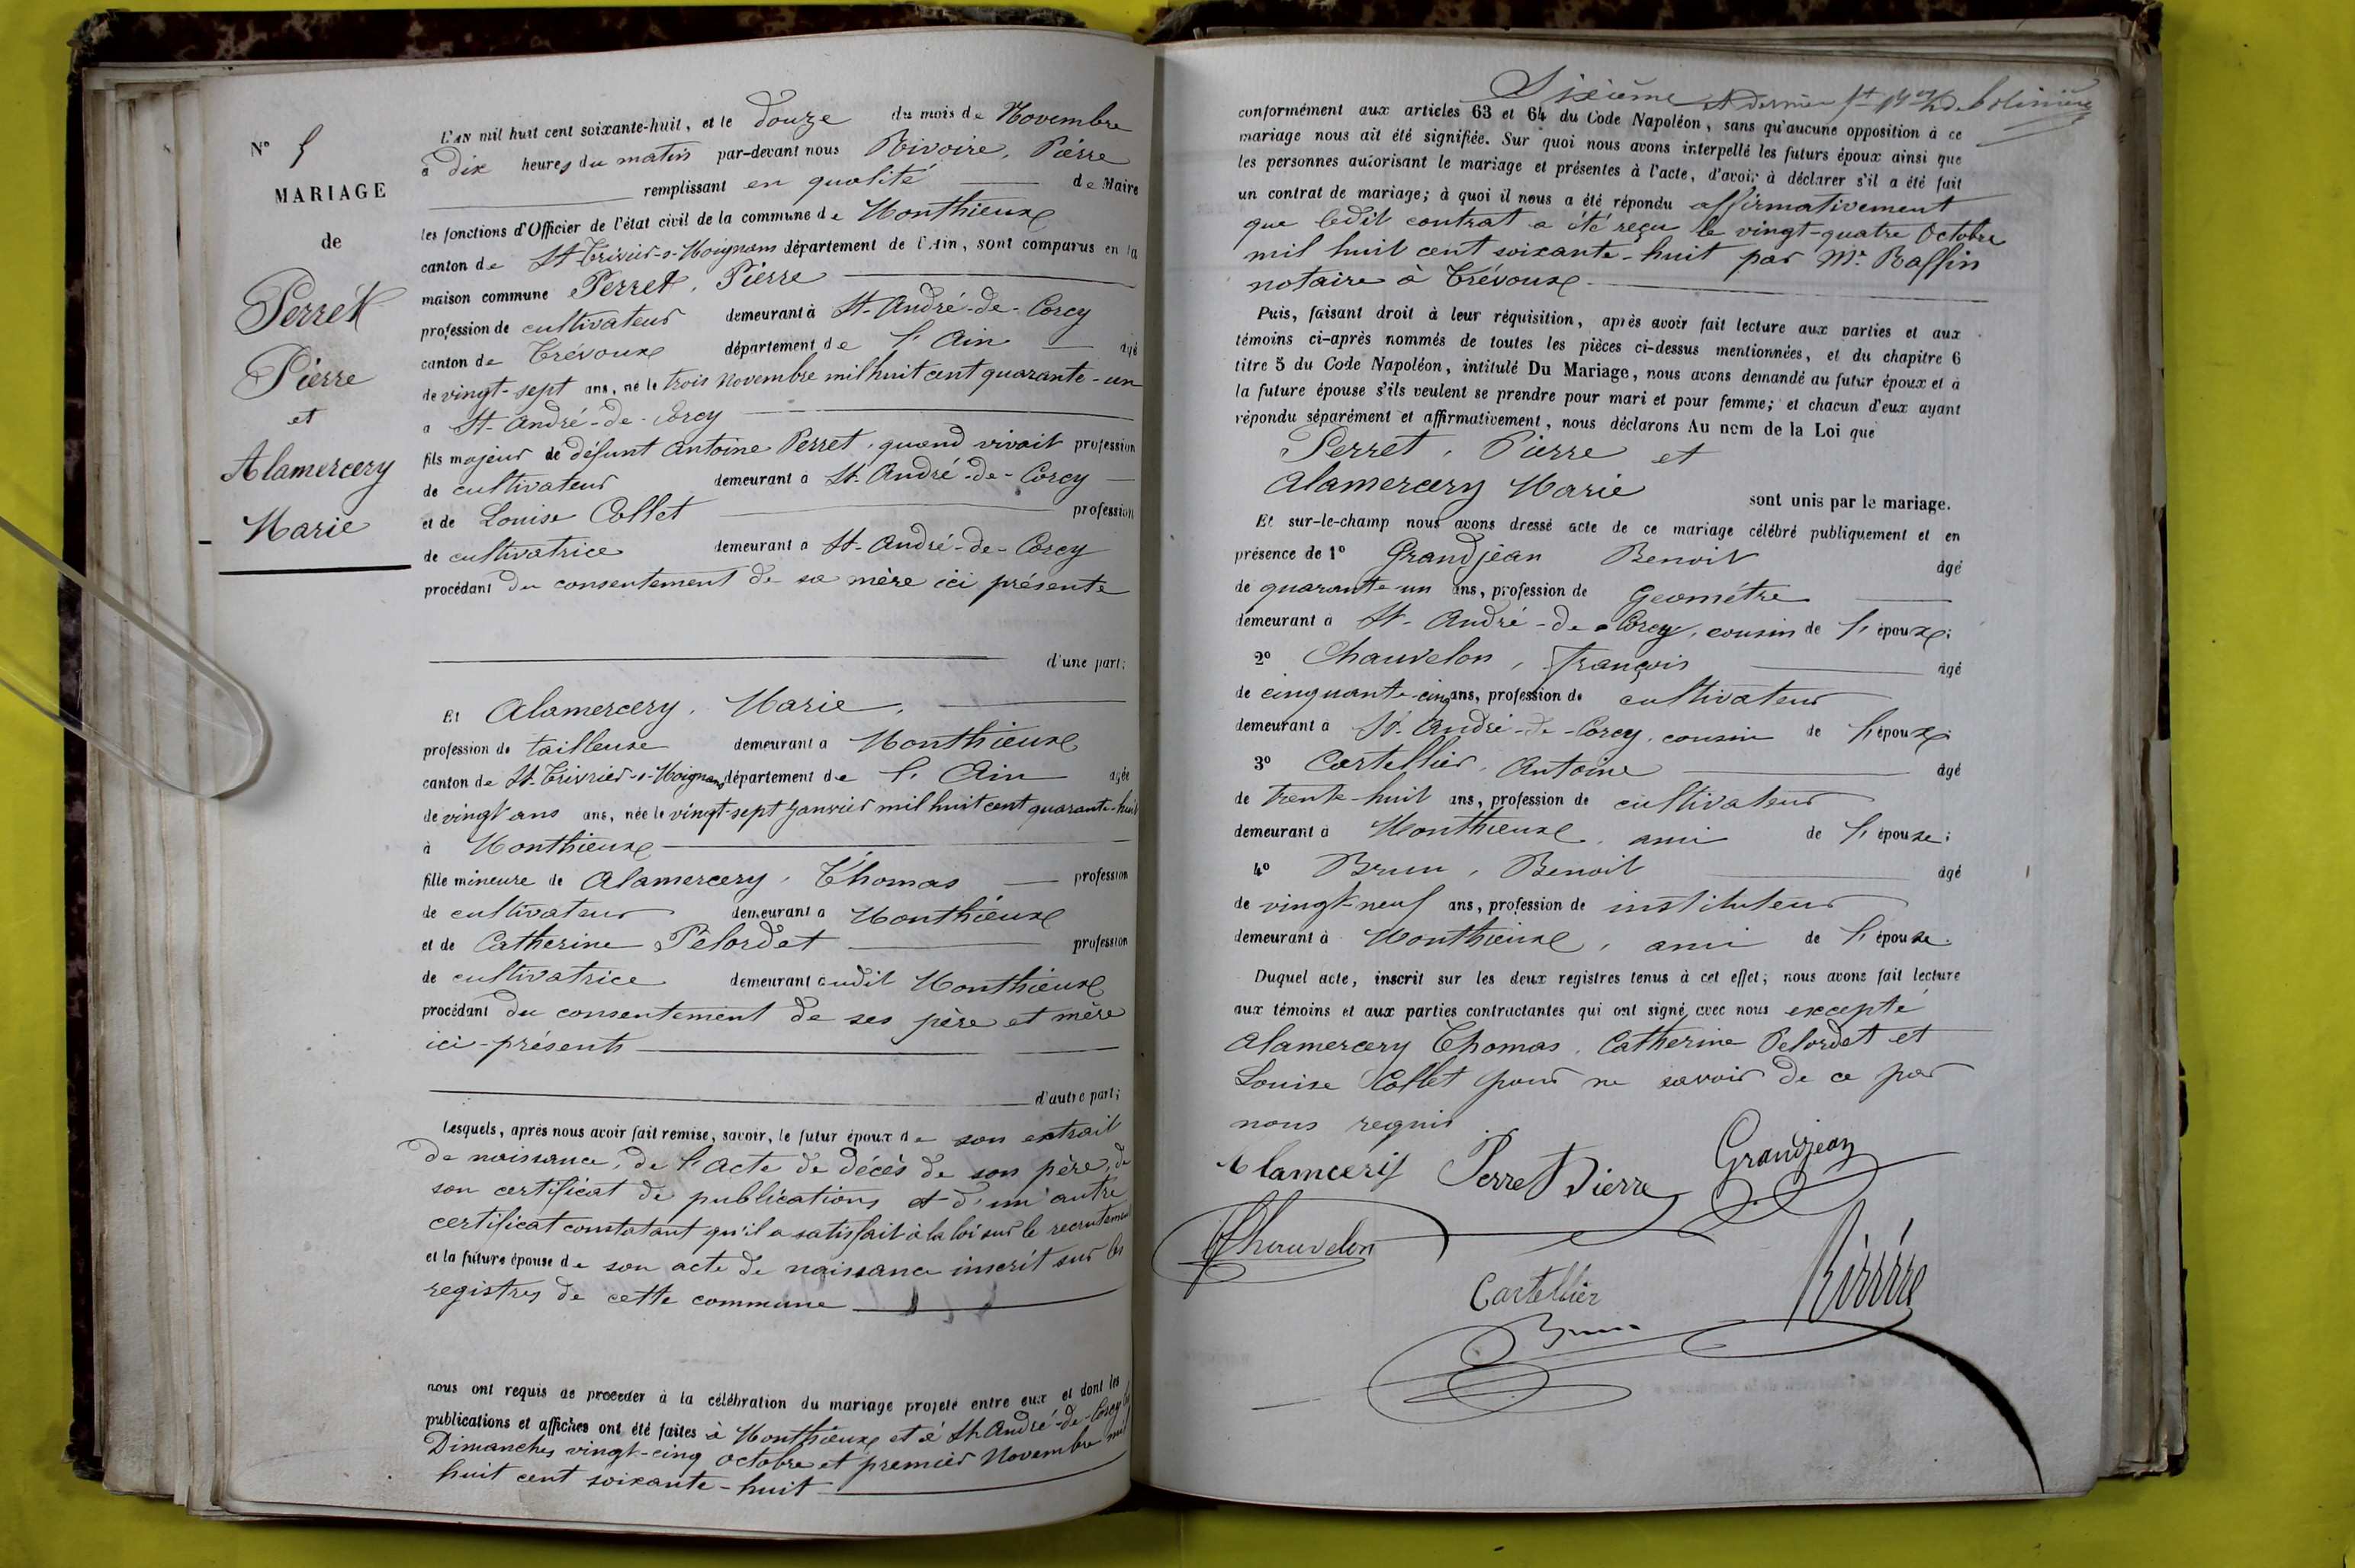 N° 5
MARIAGE
de
Perret
Pierre
et
Alamercery
Marie
L'AN mil huit cent soixante-huit, et le douze du mois de Novembre
à dix heures du matin par-devant nous Rivoire, Pierre
remplissant en qualité de Maire
les fonctions d'Officier de l'état civil de la commune de Monthieux
canton de St-Trivier-s-Moignans département de l'Ain, sont comparus en la
maison commune Perret, Pierre
profession de cultivateur demeurant à St-André-de-Corcy
canton de Trévoux département de l'Ain âgé
de vingt-sept ans, né le trois Novembre mil huit cent quarante-un
à St-André-de-Corcy
fils majeur de défunt Antoine Perret, quand vivait profession
de cultivateur demeurant à St-André-de-Corcy
et de Louise Collet profession
de cultivatrice demeurant à St-André-de-Corcy
procédant du consentement de sa mère ici présente
d'une part;
Et Alamercery, Marie,
profession de tailleuse demeurant à Monthieux
canton de St-Trivier-s-Moignans département de l'Ain âgée
de vingt ans ans, née le vingt-sept Janvier mil huit cent quarante-huit
à Monthieux
fille mineure de Alamercery, Thomas profession
de cultivateur demeurant à Monthieux
et de Catherine Pelordet profession
de cultivatrice demeurant audit Monthieux
procédant du consentement de ses père et mère
ici-présents
d'autre part;
Lesquels, après nous avoir fait remise, savoir, le futur époux de son extrait
de naissance, de l'acte de décès de son père, de
son certificat de publications et d'un autre
certificat constatant qu'il a satisfait à la loi sur le recrutement
et la future épouse de son acte de naissance inscrit sur les
registres de cette commune
nous ont requis de procéder à la célébration du mariage projeté entre eux et dont les
publications et affiches ont été faites à Monthieux et à St-André-de-Corcy les
Dimanches vingt-cinq Octobre et premier Novembre mil
huit cent soixante-huit
Sixième et dernier
conformément aux articles 63 et 64 du Code Napoléon, sans qu'aucune opposition à ce
mariage nous ait été signifiée. Sur quoi nous avons interpellé les futurs époux ainsi que
les personnes autorisant le mariage et présentes à l'acte, d'avoir à déclarer s'il a été fait
un contrat de mariage; à quoi il nous a été répondu affirmativement
que ledit contrat a été reçu le vingt-quatre Octobre
mil huit cent soixante-huit par Me Raffin
notaire à Trévoux
Puis, faisant droit à leur réquisition, après avoir fait lecture aux parties et aux
témoins ci-après nommés de toutes les pièces ci-dessus mentionnées, et du chapitre 6
titre 5 du Code Napoléon, intitulé Du Mariage, nous avons demandé au futur époux et à
la future épouse s'ils veulent se prendre pour mari et pour femme; et chacun d'eux ayant
répondu séparément et affirmativement, nous déclarons Au nom de la Loi que
Perret, Pierre et
Alamercery Marie sont unis par le mariage.
Et sur-le-champ nous avons dressé acte de ce mariage célébré publiquement et en
présence de 1° Grandjean Benoit âgé
de quarante-un ans, profession de Géomètre
demeurant à St-André-de-Corcy, cousin de l'époux;
2° Chauvelon, François âgé
de cinquante-cinq ans, profession de cultivateur
demeurant à St-André-de-Corcy, cousin de l'époux;
3° Cartellier, Antoine âgé
de trente-huit ans, profession de cultivateur
demeurant à Monthieux, ami de l'épouse;
4° Brun, Benoit âgé
de vingt-neuf ans, profession de instituteur
demeurant à Monthieux, ami de l'épouse.
Duquel acte, inscrit sur les deux registres tenus à cet effet, nous avons fait lecture
aux témoins et aux parties contractantes qui ont signé avec nous excepté
Alamercery Thomas, Catherine Pelordet et
Louise Collet pour ne savoir de ce par
nous requis
Perret Pierre Grandjean
Chauvelon
Cartellier Rivoire
Brun